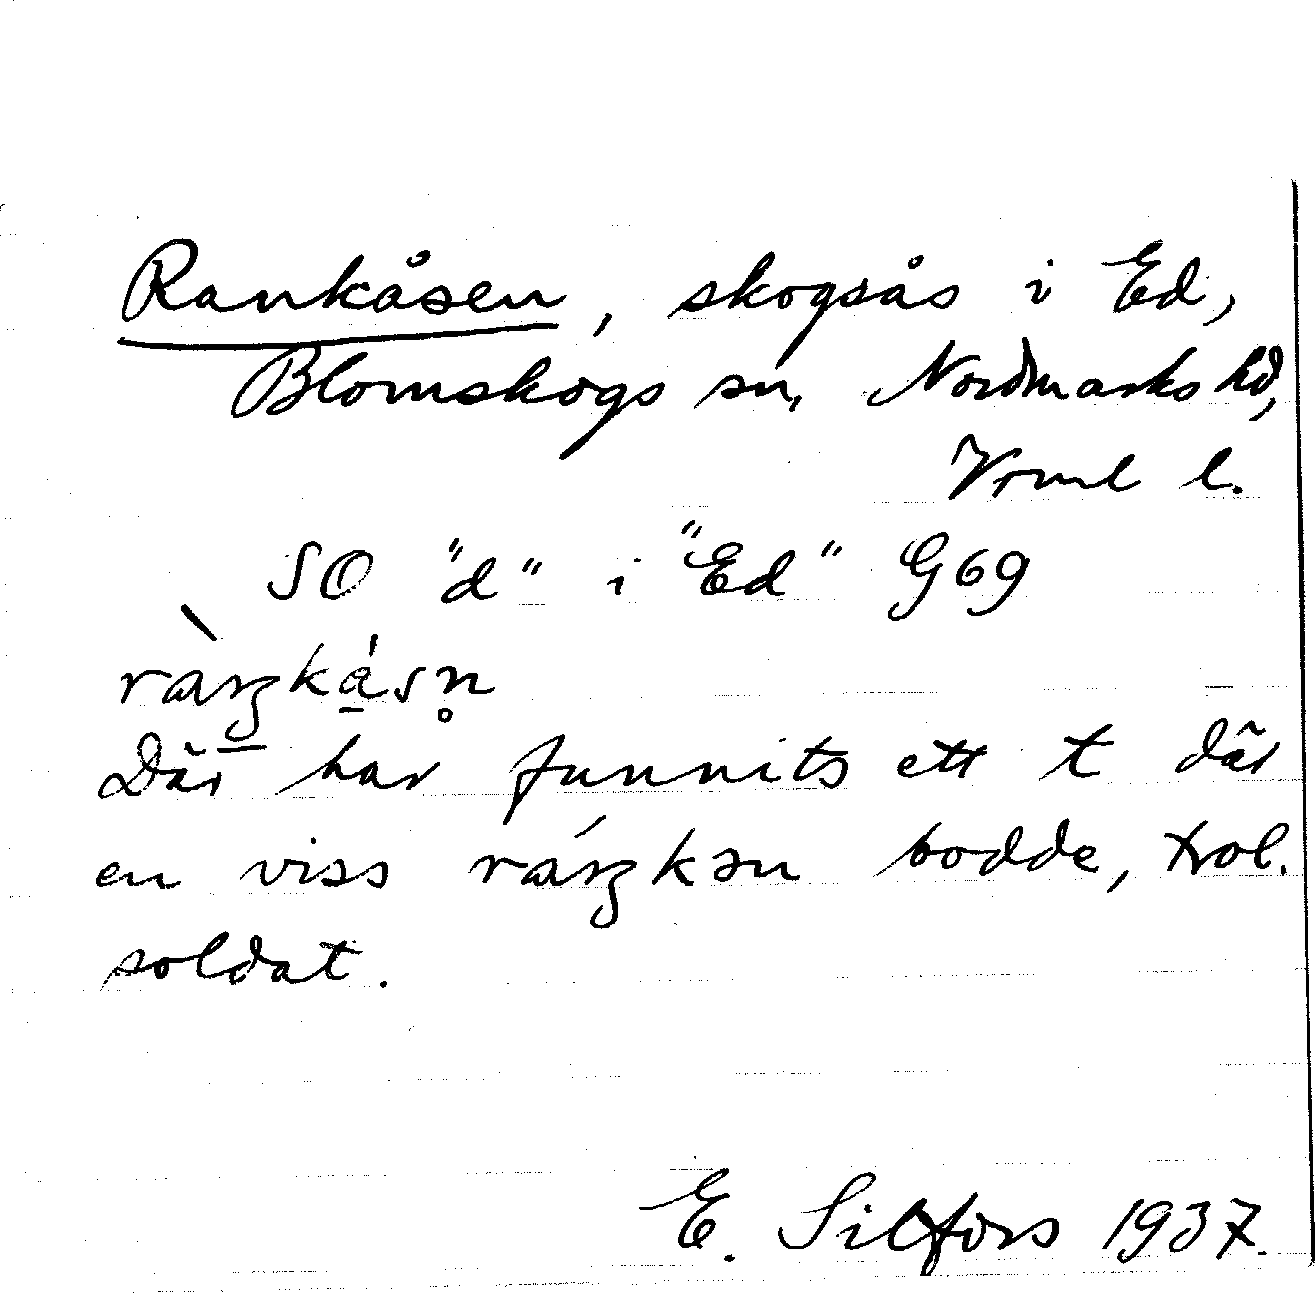 Rankåsen, skogsås i Ed,
Blomskogs sn, Nordmarks hd,
Vrml l.
SO "d" i "Ed" G69
ràŋkåsn̥
Där har funnits ett t där
en viss ráŋkən bodde, trol.
soldat.
E. Silfors 1937.